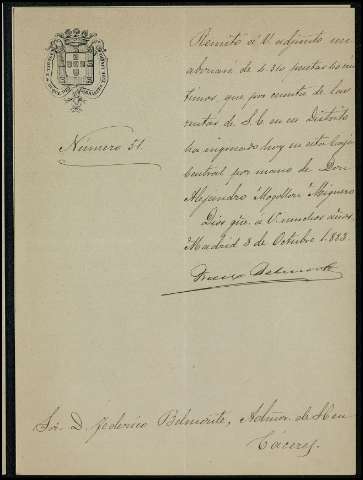 Número 51.
Remito á V. adjunto un
abonaré de 4.310 pesetas
que por cuenta de las
rentas de S. E. en ese Distrito
ha ingresado hoy en esta Caja
Central por mano de Don
Alejandro Mogollon
Dios gue. á V. muchos años.
Madrid 3 de Octubre 1.883.
Belmonte
Sor. D. Federico Belmonte, Admor. de S. E. en
Cáceres.